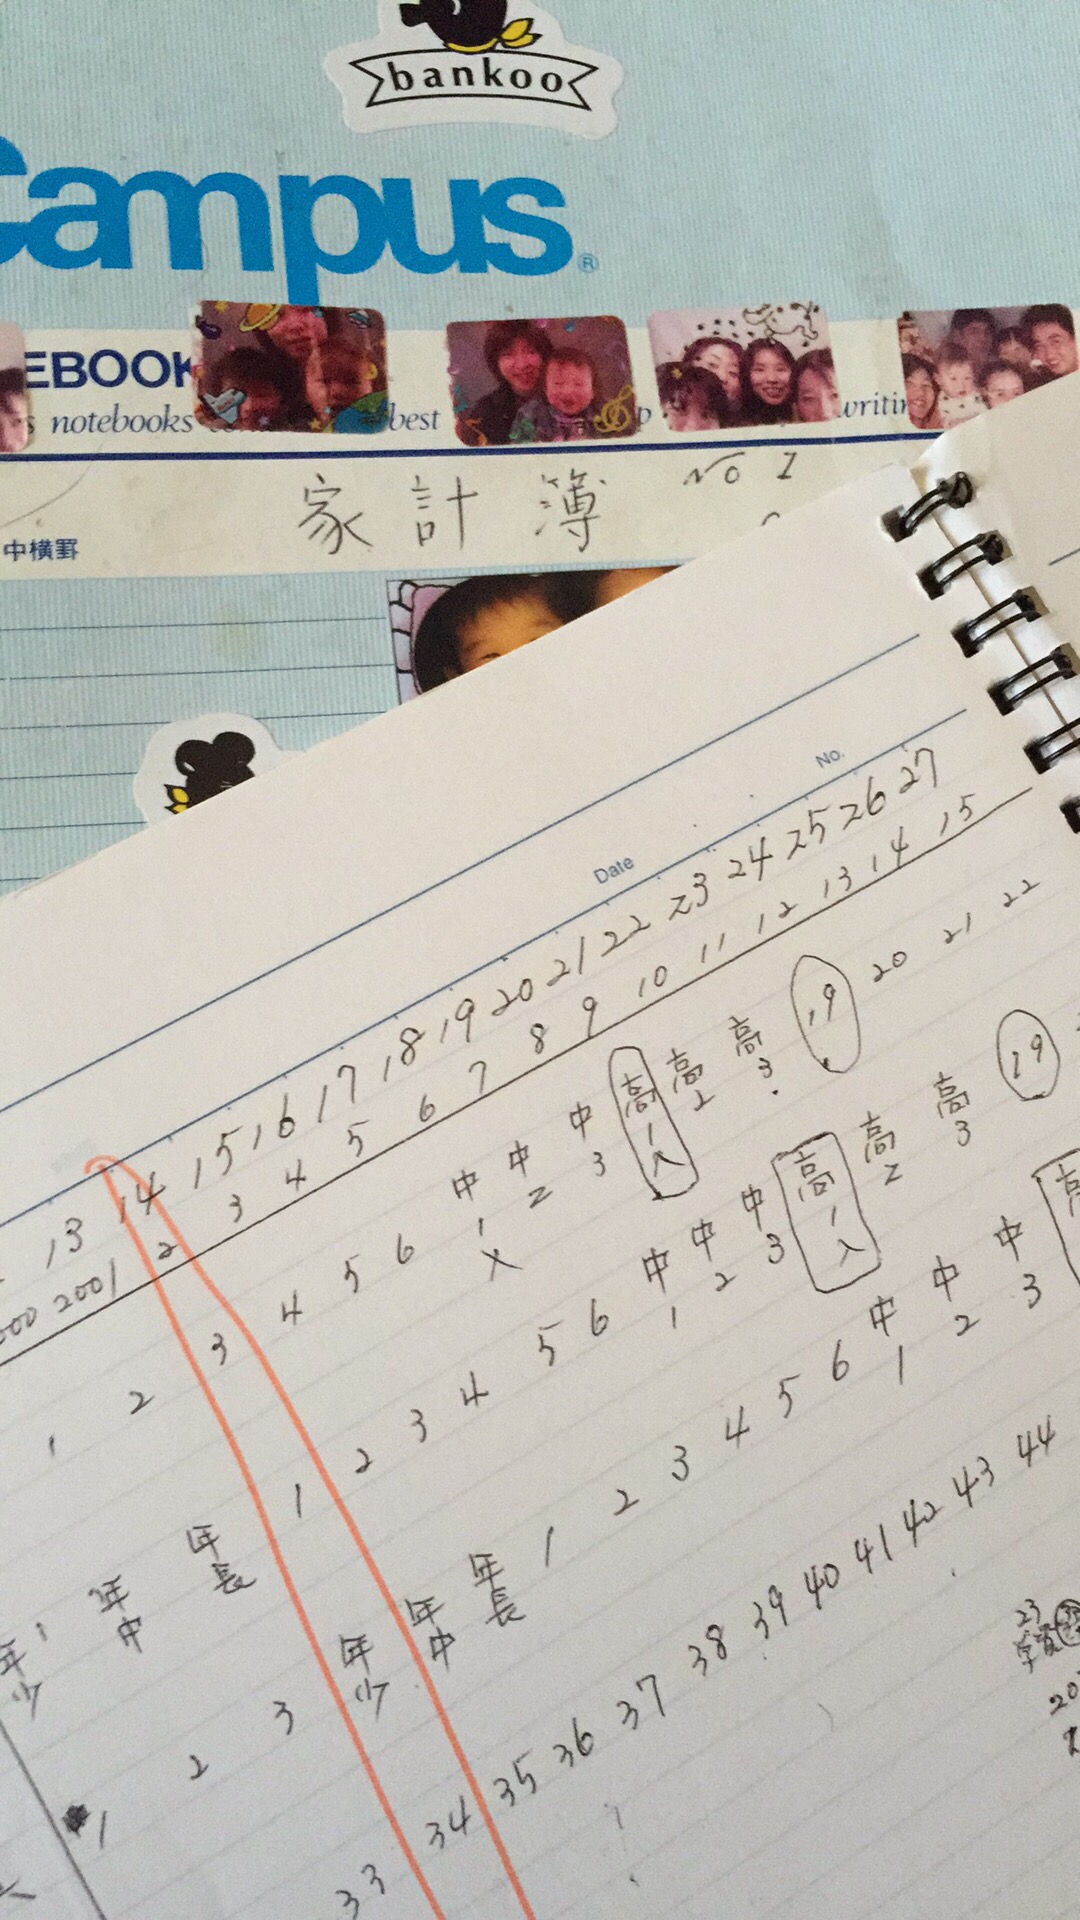 bankoo
Campus®
EBOOK
notebooks best writin
家計簿 No 1
中横罫
No.
Date
13 14 15 16 17 18 19 20 21 22 23 24 25 26 27
000 2001 2 3 4 5 6 7 8 9 10 11 12 13 14 15
1 2 3 4 5 6 中1 中2 中3 高1入 高2 高3 19 20 21 22
年少 年中 年長 1 2 3 4 5 6 中1 中2 中3 高1入 高2 高3 19
1 2 3 年少 年中 年長 1 2 3 4 5 6 中1 中2 中3 高
33 34 35 36 37 38 39 40 41 42 43 44
23
20